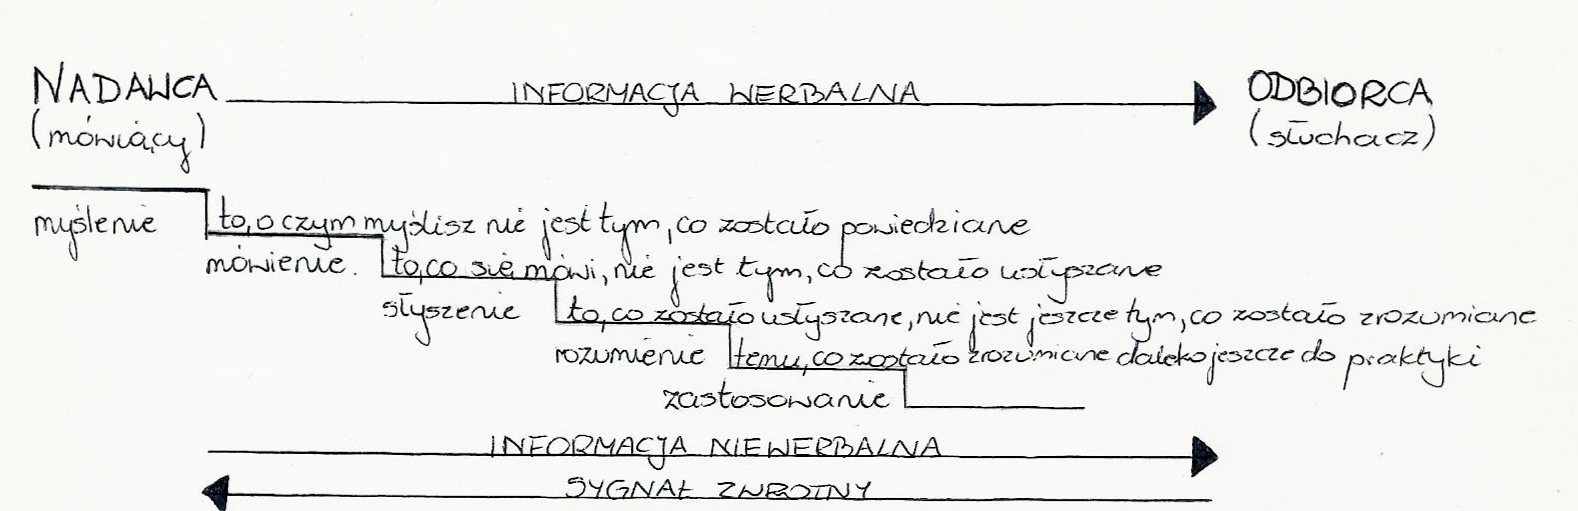 NADAWCA INFORMACJA WERBALNA ODBIORCA
(mówiący) (słuchacz)
myślenie to, o czym myślisz nie jest tym, co zostało powiedziane
mówienie. to, co się mówi, nie jest tym, co zostało usłyszane
słyszenie to, co zostało usłyszane, nie jest jeszcze tym, co zostało zrozumiane
rozumienie temu, co zostało zrozumiane daleko jeszcze do praktyki
zastosowanie
INFORMACJA NIEWERBALNA
SYGNAŁ ZWROTNY